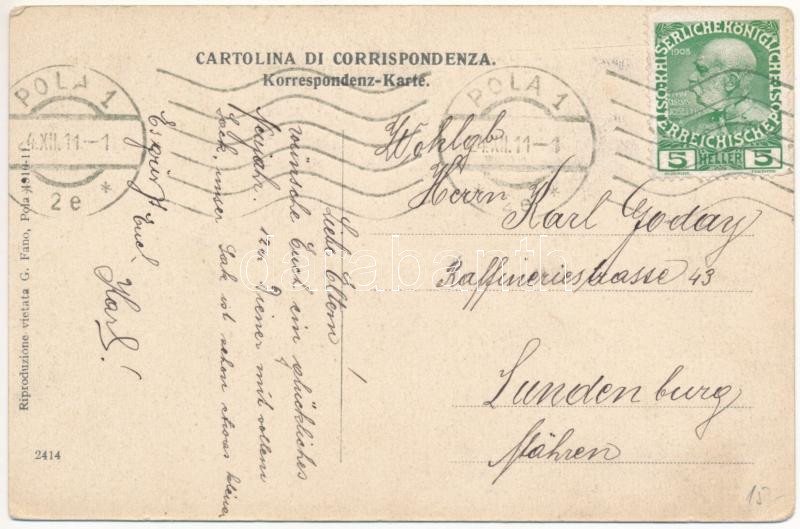 CARTOLINA DI CORRISPONDENZA.
Korrespondenz-Karte.
POLA 1
4.XII.11.-1
2e *
POLA 1
4.XII.11.-1
*
KAISERLICHE KÖNIGLICHE ÖSTERREICHISCHE POST
1908
5 HELLER 5
Wohlgb.
Herrn Karl Goday
Raffineriestrasse 43
Lundenburg
Mähren
Liebe Eltern!
wünsche Euch ein glückliches
Neujahr. Der Diener mit vollem
Sack, unser Sak ist schon etwas kleiner
Es grüßt Euch
Karl!
Riproduzione vietata G. Fano, Pola 1910-11.
2414
15.-
darabanth